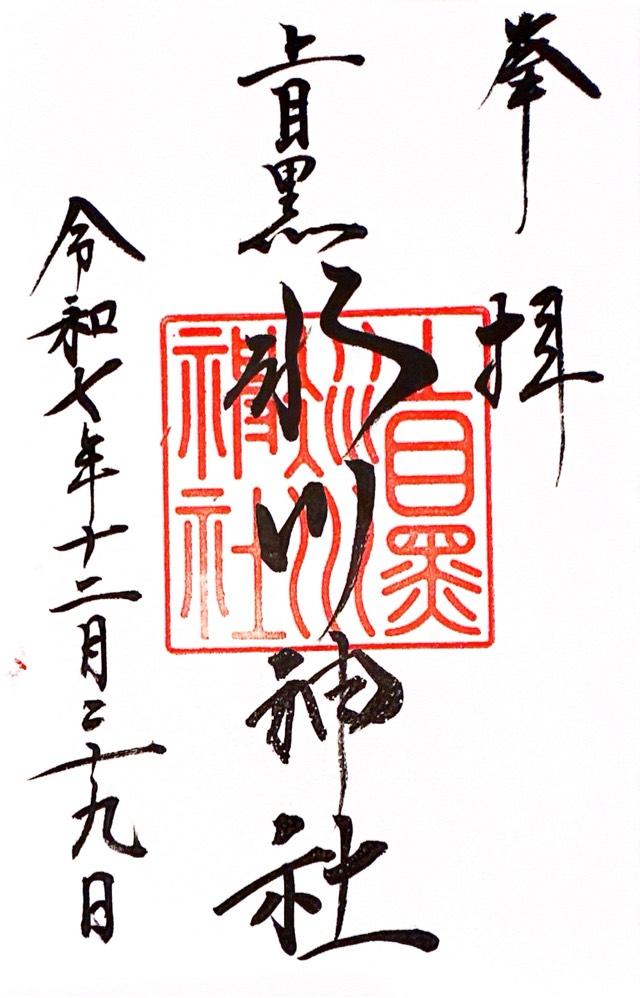 奉拝
上目黒氷川神社
上目黒氷川神社
令和七年十二月二十九日